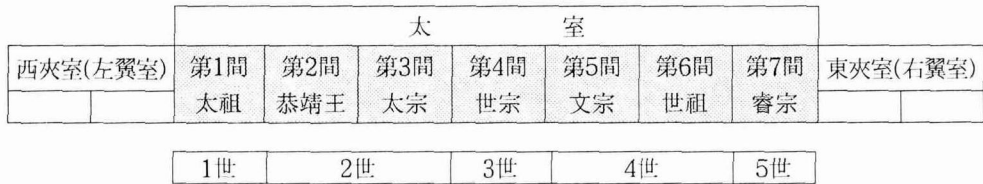 太室
西夾室(左翼室) 第1間 第2間 第3間 第4間 第5間 第6間 第7間 東夾室(右翼室)
太祖 恭靖王 太宗 世宗 文宗 世祖 睿宗
1世 2世 3世 4世 5世